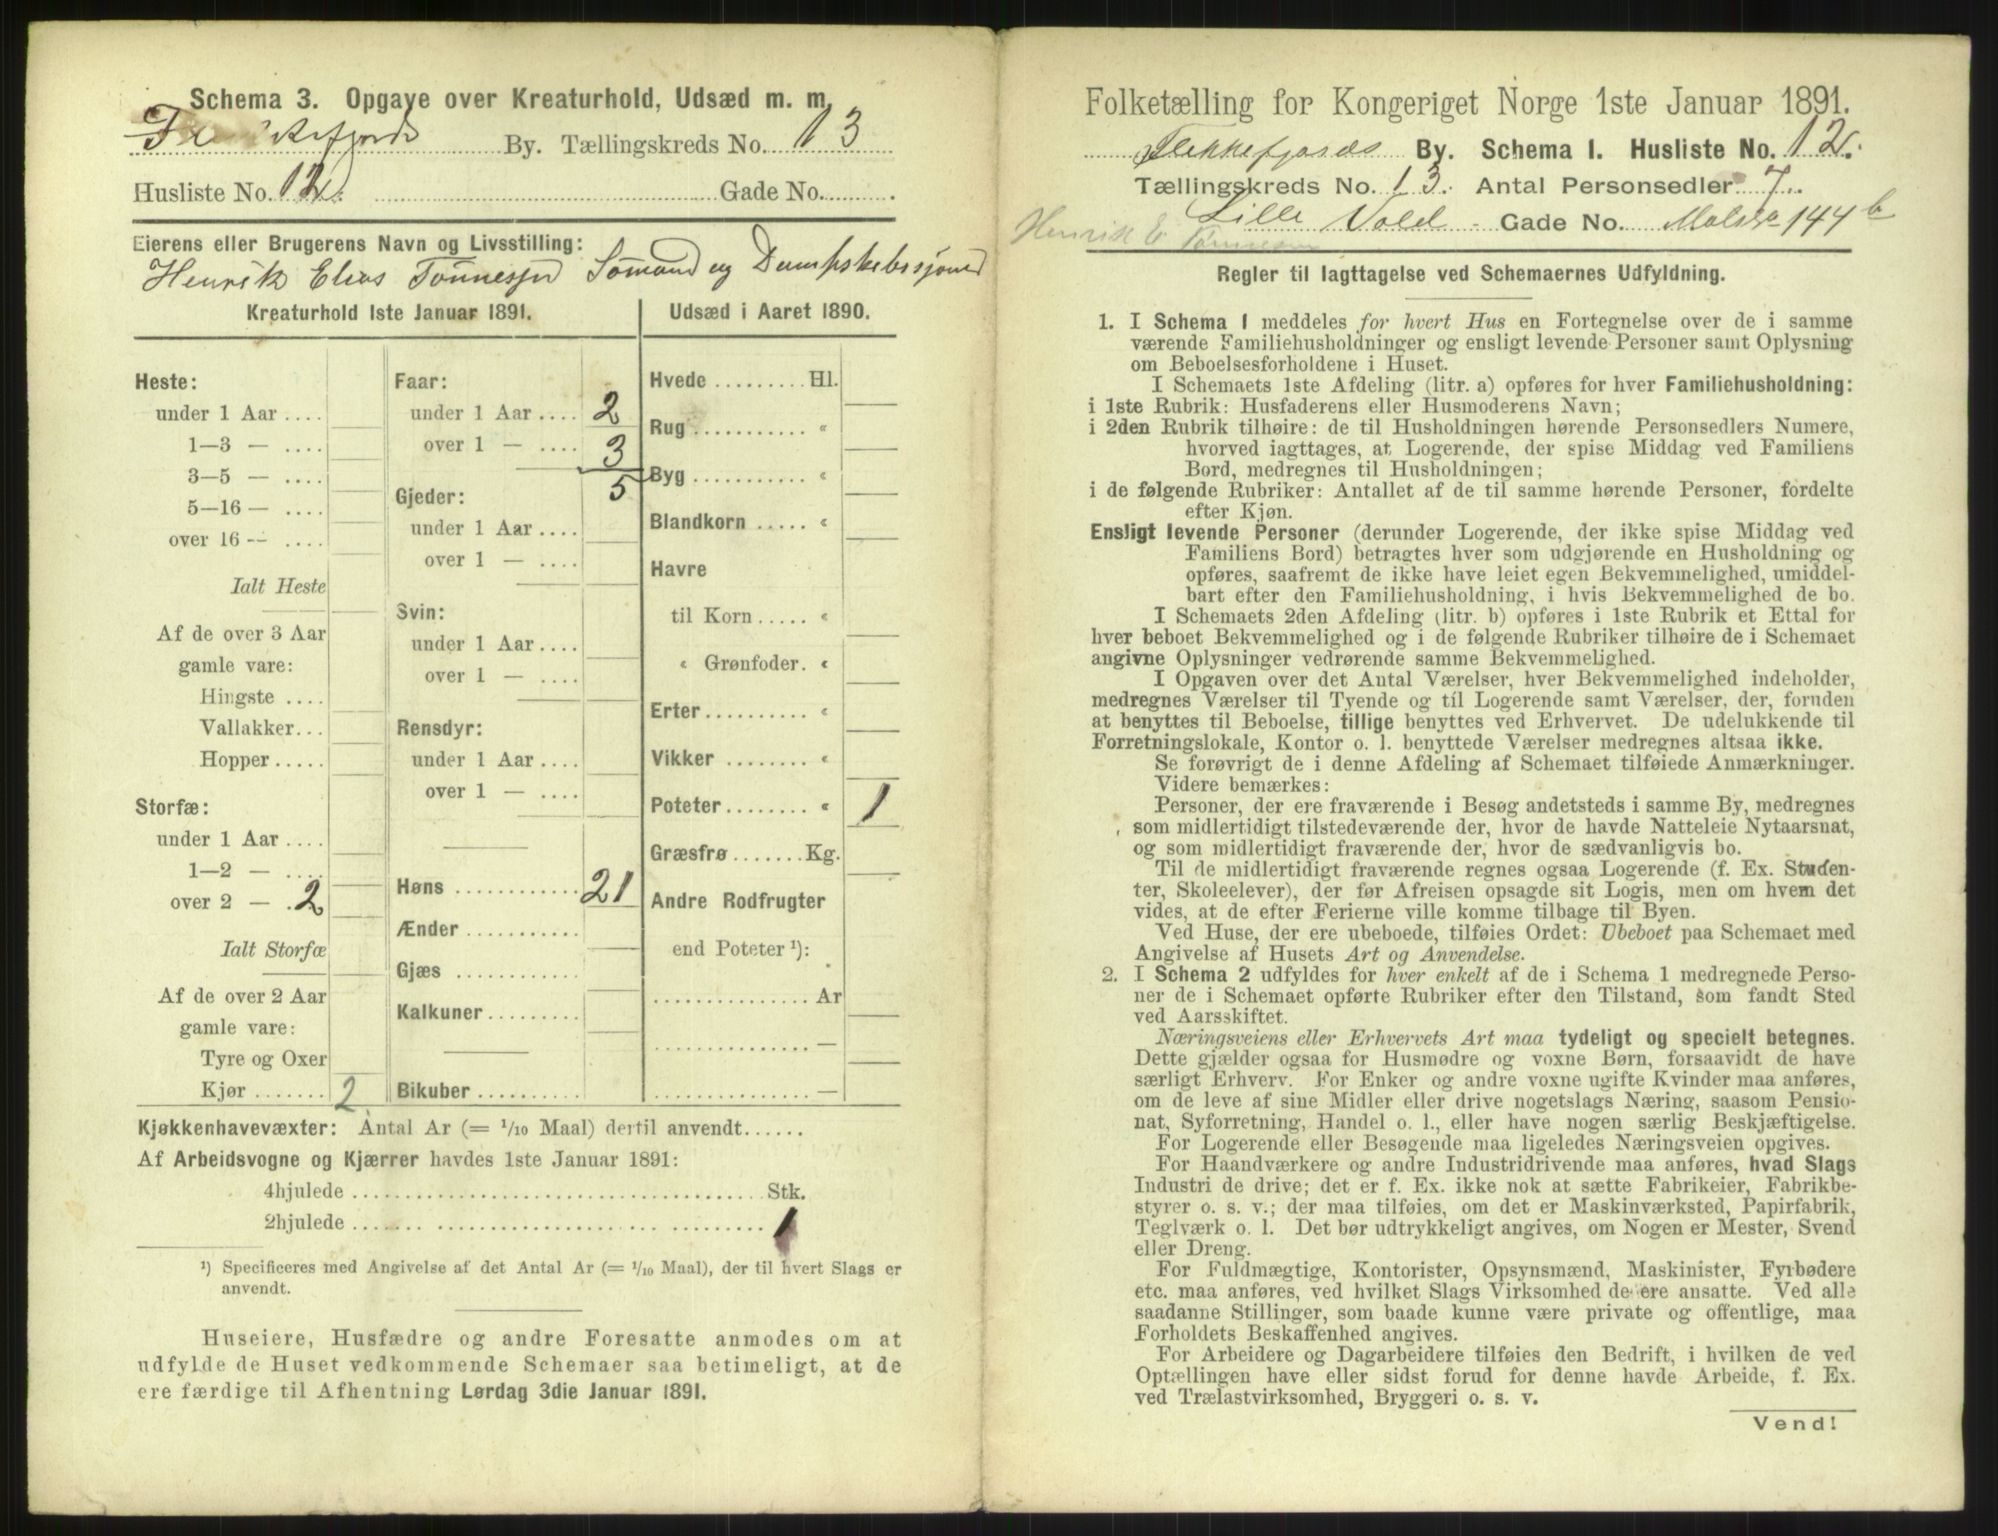 Schema 3. Opgave over Kreaturhold, Udsæd m. m.
By. Tællingskreds No. 13
Husliste No. 12. Gade No. .
Eierens eller Brugerens Navn og Livsstilling:
Henrik Elias Tönnesen Sömand og
Kreaturhold 1ste Januar 1891.
Heste:
under 1 Aar ....
1—3 — ....
3—5 — ....
5—16 — ....
over 16 — ....
Ialt Heste
Af de over 3 Aar
gamle vare:
Hingste ....
Vallakker...
Hopper .....
Storfæ:
under 1 Aar ....
1—2 — ....
over 2 — . 2
Ialt Storfæ
Af de over 2 Aar
gamle vare:
Tyre og Oxer
Kjør ....... 2
Faar:
under 1 Aar .... 2
over 1 — .... 3
5
Gjeder:
under 1 Aar ....
over 1 — ....
Svin:
under 1 Aar ....
over 1 — ....
Rensdyr:
under 1 Aar ....
over 1 — ....
Høns ............ 21
Ænder ...........
Gjæs ............
Kalkuner.........
Bikuber ..........
Udsæd i Aaret 1890.
Hvede ......... Hl.
Rug ........... “
Byg ........... “
Blandkorn ..... “
Havre
til Korn ..... “
“ Grønfoder. “
Erter.......... “
Vikker ........ “
Poteter........ “ 1
Græsfrø .......Kg.
Andre Rodfrugter
end Poteter ¹):
............... Ar
............... —
............... —
Kjøkkenhavevæxter: Antal Ar (= 1/10 Maal) dertil anvendt......
Af Arbeidsvogne og Kjærrer havdes 1ste Januar 1891:
4hjulede ........................................ Stk.
2hjulede ........................................ 1
¹) Specificeres med Angivelse af det Antal Ar (= 1/10 Maal), der til hvert Slags er
anvendt.
Huseiere, Husfædre og andre Foresatte anmodes om at
udfylde de Huset vedkommende Schemaer saa betimeligt, at de
ere færdige til Afhentning Lørdag 3die Januar 1891.
Folketælling for Kongeriget Norge 1ste Januar 1891.
Flekkefjords By. Schema 1. Husliste No. 12.
Tællingskreds No. 13. Antal Personsedler 7.
Lille Vold - Gade No. 144 b
Henrik E Tönnesen
Regler til Iagttagelse ved Schemaernes Udfyldning.
1. I Schema 1 meddeles for hvert Hus en Fortegnelse over de i samme
værende Familiehusholdninger og ensligt levende Personer samt Oplysning
om Beboelsesforholdene i Huset.
I Schemaets 1ste Afdeling (litr. a) opføres for hver Familiehusholdning:
i 1ste Rubrik: Husfaderens eller Husmoderens Navn;
i 2den Rubrik tilhøire: de til Husholdningen hørende Personsedlers Numere,
hvorved iagttages, at Logerende, der spise Middag ved Familiens
Bord, medregnes til Husholdningen;
i de følgende Rubriker: Antallet af de til samme hørende Personer, fordelte
efter Kjøn.
Ensligt levende Personer (derunder Logerende, der ikke spise Middag ved
Familiens Bord) betragtes hver som udgjørende en Husholdning og
opføres, saafremt de ikke have leiet egen Bekvemmelighed, umiddel-
bart efter den Familiehusholdning, i hvis Bekvemmelighed de bo.
I Schemaets 2den Afdeling (litr. b) opføres i 1ste Rubrik et Ettal for
hver beboet Bekvemmelighed og i de følgende Rubriker tilhøire de i Schemaet
angivne Oplysninger vedrørende samme Bekvemmelighed.
I Opgaven over det Antal Værelser, hver Bekvemmelighed indeholder,
medregnes Værelser til Tyende og til Logerende samt Værelser, der, foruden
at benyttes til Beboelse, tillige benyttes ved Erhvervet. De udelukkende til
Forretningslokale, Kontor o. l. benyttede Værelser medregnes altsaa ikke.
Se forøvrigt de i denne Afdeling af Schemaet tilføiede Anmærkninger.
Videre bemærkes:
Personer, der ere fraværende i Besøg andetsteds i samme By, medregnes
som midlertidigt tilstedeværende der, hvor de havde Natteleie Nytaarsnat,
og som midlertidigt fraværende der, hvor de sædvanligvis bo.
Til de midlertidigt fraværende regnes ogsaa Logerende (f. Ex. Studen-
ter, Skoleelever), der før Afreisen opsagde sit Logis, men om hvem det
vides, at de efter Ferierne ville komme tilbage til Byen.
Ved Huse, der ere ubeboede, tilføies Ordet: Ubeboet paa Schemaet med
Angivelse af Husets Art og Anvendelse.
2. I Schema 2 udfyldes for hver enkelt af de i Schema 1 medregnede Perso-
ner de i Schemaet opførte Rubriker efter den Tilstand, som fandt Sted
ved Aarsskiftet.
Næringsveiens eller Erhvervets Art maa tydeligt og specielt betegnes.
Dette gjælder ogsaa for Husmødre og voxne Børn, forsaavidt de have
særligt Erhverv. For Enker og andre voxne ugifte Kvinder maa anføres,
om de leve af sine Midler eller drive nogetslags Næring, saasom Pensio-
nat, Syforretning, Handel o. l., eller have nogen særlig Beskjæftigelse.
For Logerende eller Besøgende maa ligeledes Næringsveien opgives.
For Haandværkere og andre Industridrivende maa anføres, hvad Slags
Industri de drive; det er f. Ex. ikke nok at sætte Fabrikeier, Fabrikbe-
styrer o. s. v.; der maa tilføies, om det er Maskinværksted, Papirfabrik,
Teglværk o. l. Det bør udtrykkeligt angives, om Nogen er Mester, Svend
eller Dreng.
For Fuldmægtige, Kontorister, Opsynsmænd, Maskinister, Fyrbødere
etc. maa anføres, ved hvilket Slags Virksomhed de ere ansatte. Ved alle
saadanne Stillinger, som baade kunne være private og offentlige, maa
Forholdets Beskaffenhed angives.
For Arbeidere og Dagarbeidere tilføies den Bedrift, i hvilken de ved
Optællingen have eller sidst forud for denne havde Arbeide, f. Ex.
ved Trælastvirksomhed, Bryggeri o. s. v.
Vend!